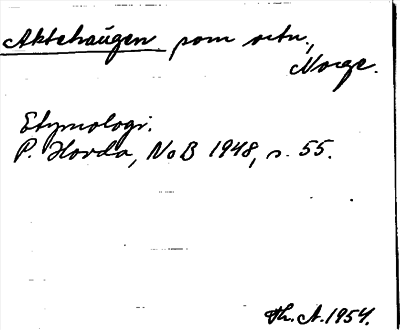 Aktehaugen som ortn.,
Norge.
Etymologi.
P. Hovda, NoB 1948, s. 55.
Th. A. 1954.